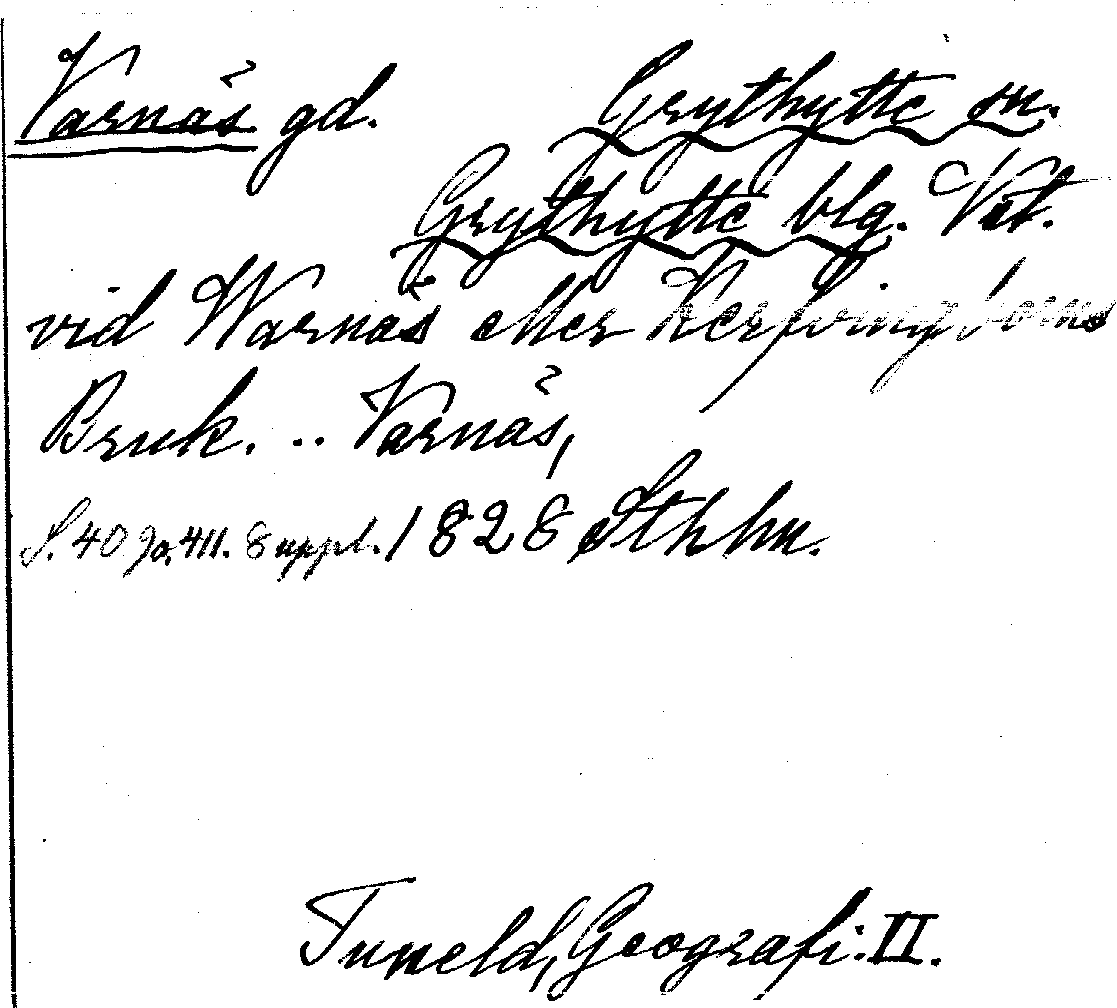 Varnås gd. Grythytte sn.
Grythytte blg. Vstm.
vid Warnås eller
Bruk. .. Varnås,
S. 409 o. 411. 8 uppl. 1828 Sthlm.
Tuneld, Geografi. II.